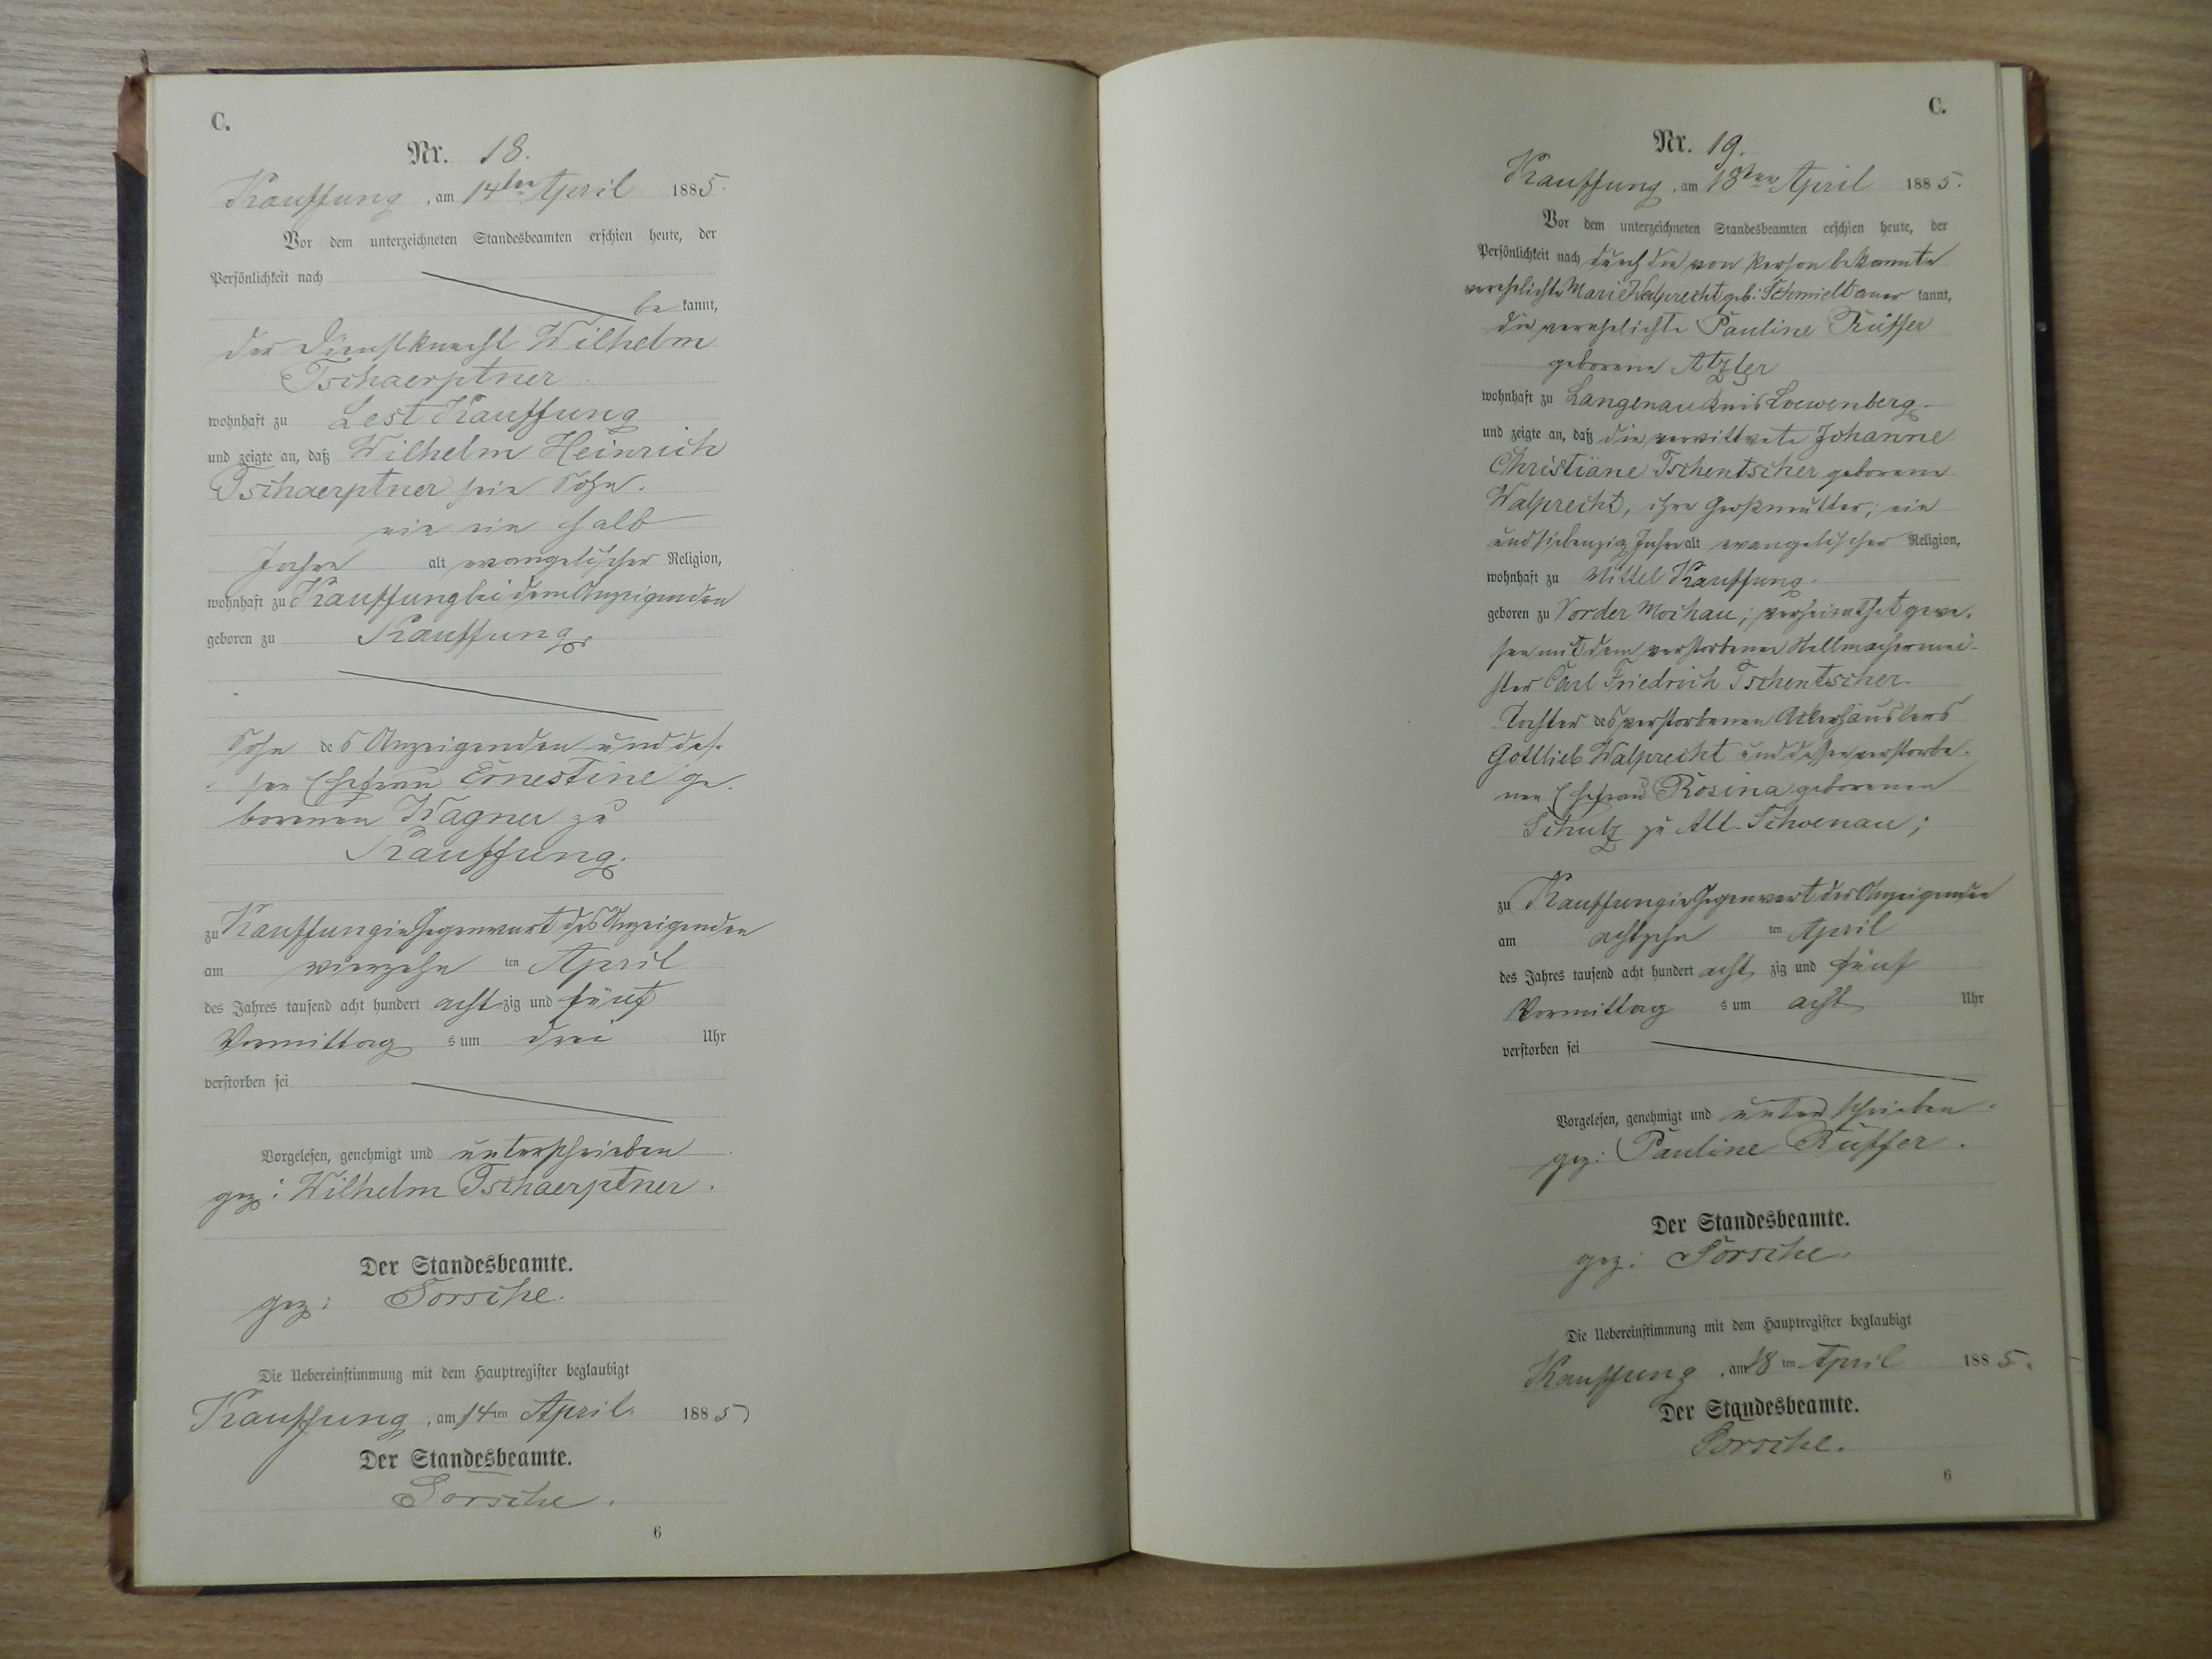 C.
Nr. 18.
Kauffung, am 14ten April 1885.
Vor dem unterzeichneten Standesbeamten erschien heute, der
Persönlichkeit nach
be kannt,
der Dienstknecht Wilhelm
Tschaerptner
wohnhaft zu Lest Kauffung
und zeigte an, daß Wilhelm Heinrich
Tschaerptner sein Sohn.
ein ein halb
Jahre alt evangelischer Religion,
wohnhaft zu Kauffung bei dem Anzeigenden
geboren zu Kauffung.
Sohn des Anzeigenden und des-
sen Ehefrau Ernestine ge-
borenen Wagner zu
Kauffung.
zu Kauffung in Gegenwart des Anzeigenden
am vierzehn ten April
des Jahres tausend acht hundert acht zig und fünf
Vormittag s um drei Uhr
verstorben sei
Vorgelesen, genehmigt und unterschrieben
gez: Wilhelm Tschaerptner.
Der Standesbeamte.
gez:
Die Uebereinstimmung mit dem Hauptregister beglaubigt
Kauffung, am 14ten April. 1885
Der Standesbeamte.
6
C.
Nr. 19.
Kauffung, am 18ten April 1885.
Vor dem unterzeichneten Standesbeamten erschien heute, der
Persönlichkeit nach durch die von Person bekannte
verehelichte Marie Walprecht geb: Schmidt aner kannt,
die verehelichte Pauline Rüffer
geborene Atzler
wohnhaft zu Langenau Kreis Loewenberg.
und zeigte an, daß die verwittwete Johanne
Christiane Tschentscher geborene
Walprecht, ihre Großmutter; ein
und siebenzig Jahre alt evangelischer Religion,
wohnhaft zu Mittel Kauffung.
geboren zu Vorder Mochau; verheirathet gewe-
sen mit dem verstorbenen Stellmachermei-
ster Carl Friedrich Tschentscher
Tochter des verstorbenen Ackerhäuslers
Gottlieb Walprecht und dessen verstorbe-
nen Ehefrau Rosina geborenen
Schulz zu Alt-Schoenau;
zu Kauffung in Gegenwart der Anzeigenden
am achtzehn ten April
des Jahres tausend acht hundert acht zig und fünf
Vormittag s um acht Uhr
verstorben sei
Vorgelesen, genehmigt und unterschrieben.
gez: Pauline Rüffer.
Der Standesbeamte.
gez:
Die Uebereinstimmung mit dem Hauptregister beglaubigt
Kauffung, am 18 ten April 1885.
Der Standesbeamte.
6